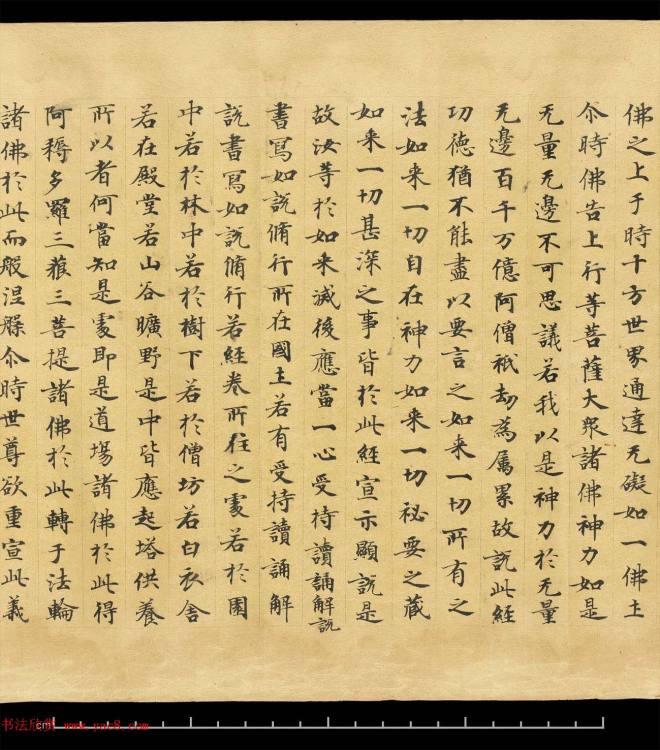 佛之上于時十方世界通達无礙如一佛土
尒時佛告上行等菩薩大衆諸佛神力如是
无量无邊不可思議若我以是神力於无量
无邊百千万億阿僧祇劫為属累故說此經
功德猶不能盡以要言之如来一切所有之
法如来一切自在神力如来一切祕要之藏
如来一切甚深之事皆於此經宣示顯說是
故汝等於如来滅後應當一心受持讀誦解說
書寫如說脩行所在國土若有受持讀誦解
說書寫如說脩行若經卷所住之處若於園
中若於林中若於樹下若於僧坊若白衣舍
若在殿堂若山谷曠野是中皆應起塔供養
所以者何當知是處即是道場諸佛於此得
阿耨多羅三藐三菩提諸佛於此轉于法輪
諸佛於此而般涅槃尒時世尊欲重宣此義
书法欣赏 www.yac8.com
cm